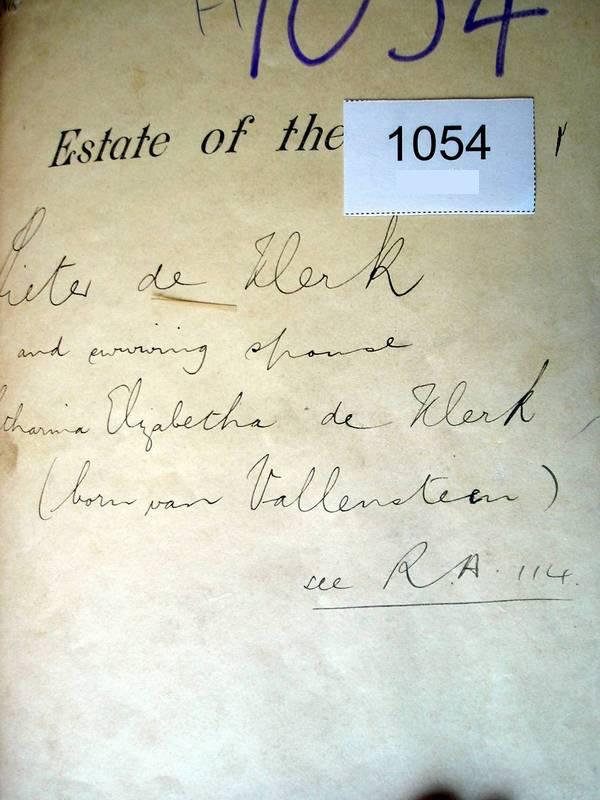 1054
Estate of the
1054
Pieter de Klerk
and surviving spouse
Catharina Elizabetha de Klerk
(born van Vallensteen)
see R.A. 114.